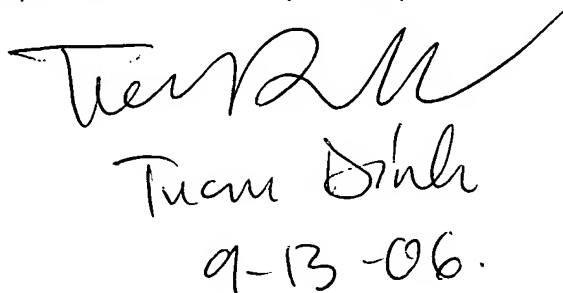 Tuan Dinh
9-13-06.